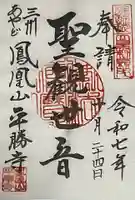 奉請
令和七年
十月二十四日
聖観世音
三州
あやど
鳳凰山平勝寺